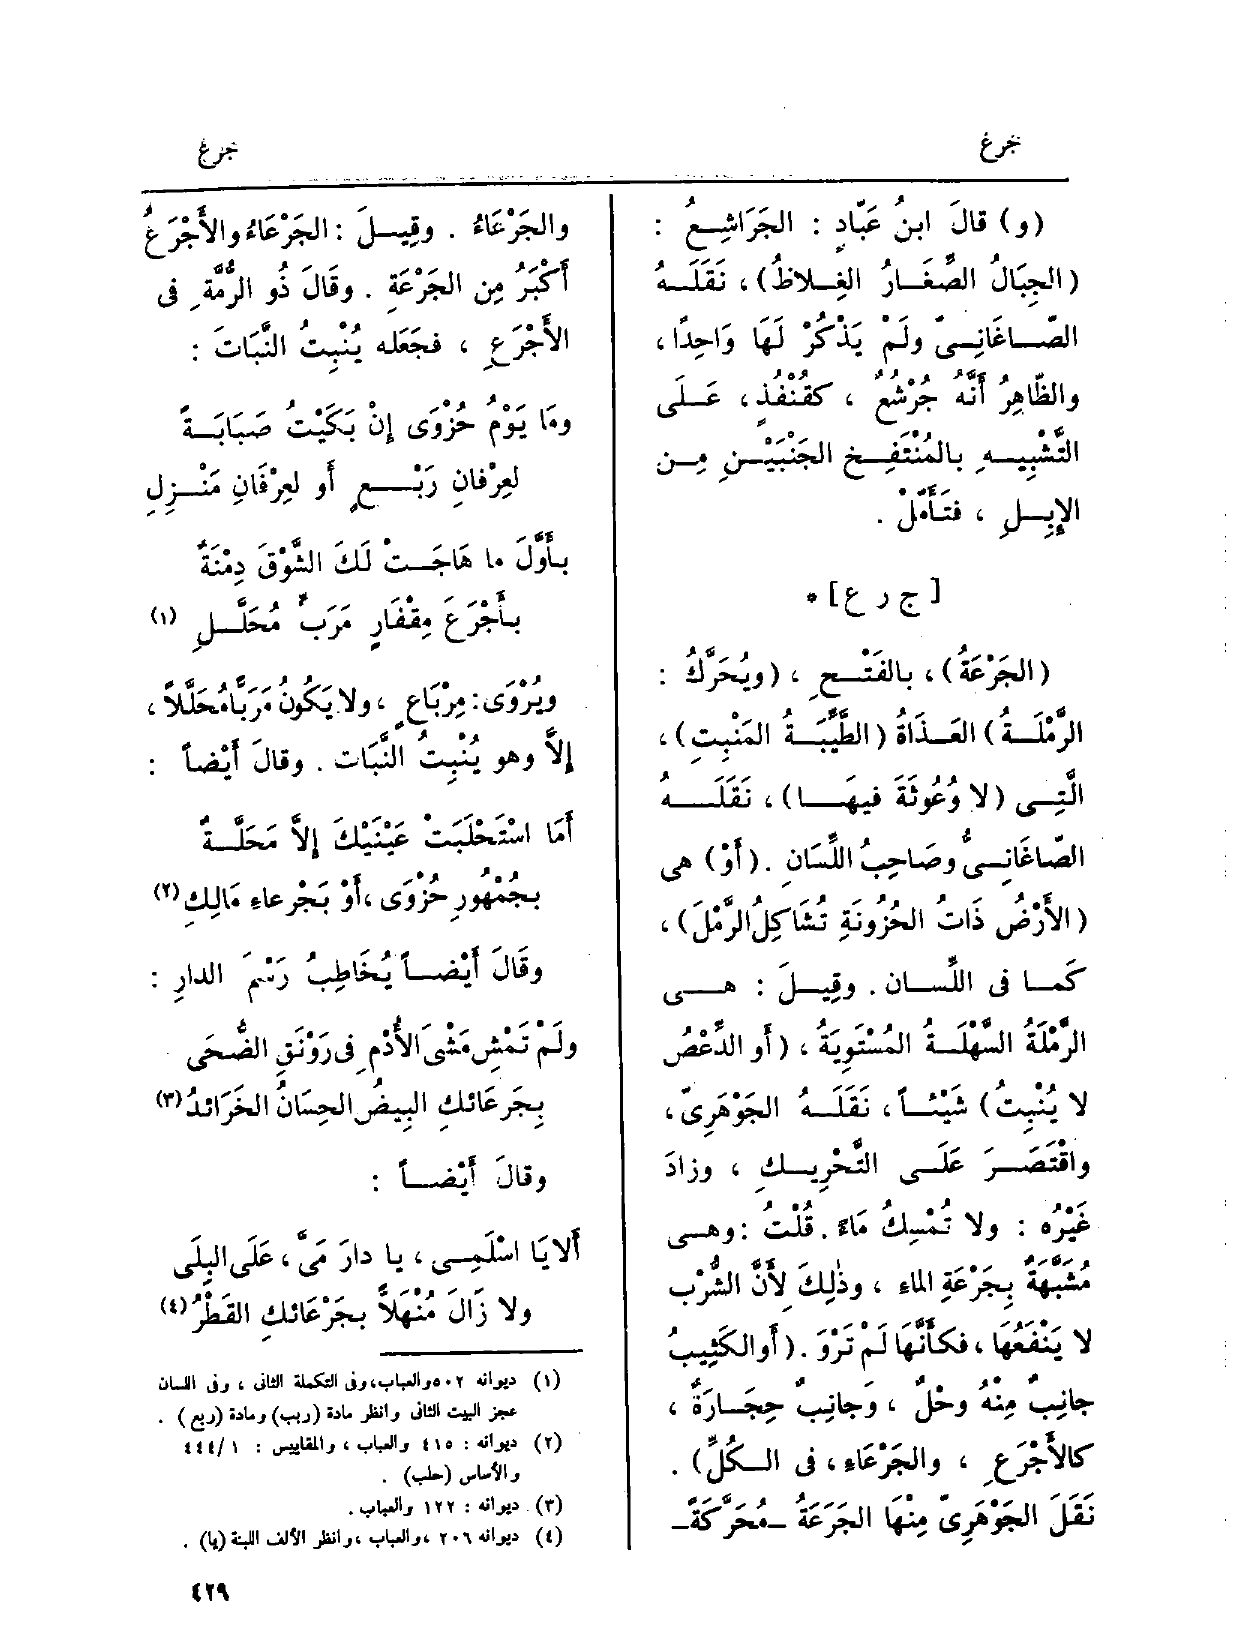 جرع
جرع
(و) قالَ ابنُ عَبّادٍ : الجَرَاشِعُ :
(الجِبَالُ الصِّغَارُ الغِلاظُ) ، نَقَلَهُ
الصّاغَانِىّ ولَمْ يَذْكُرْ لَهَا وَاحِدًا ،
والظّاهِرُ أَنَّهُ جُرْشُعٌ ، كقُنْفُذٍ ، عَلَى
التَّشْبِيهِ بالمُنْتَفِخِ الجَنْبَيْنِ مِن
الإِبِلِ ، فتَأَمّلْ .
[ ج ر ع ] *
(الجَرْعَةُ) ، بالفَتْحِ ، (ويُحَرَّكُ :
الرَّمْلَةُ) العَذَاةُ (الطَّيِّبَةُ المَنْبِتِ) ،
الَّتِى (لا وُعُوثَةَ فيهَا) ، نَقَلَهُ
الصّاغَانِىُّ وصَاحِبُ اللِّسَانِ . (أَوْ) هى
(الأَرْضُ ذَاتُ الحُزُونَةِ تُشَاكِلُ الرَّمْلَ) ،
كَمَا فى اللِّسَان . وقِيلَ : هِى
الرَّمْلَةُ السَّهْلَةُ المُسْتَوِيَةُ ، (أَو الدِّعْصُ
لا يُنْبِتُ) شَيْئاً ، نَقَلَهُ الجَوْهَرِىّ ،
واقْتَصَرَ عَلَى التَّحْرِيكِ ، وزادَ
غَيْرُه : ولا تُمْسِكُ مَاءً . قُلْتُ : وهى
مُشَبَّهَةٌ بِجَرْعَةِ الماءِ ، وذٰلِكَ لِأَنَّ الشُّرْبَ
لا يَنْفَعُهَا ، فكَأَنَّهَا لَمْ تَرْوَ . (أَو الكَثِيبُ
جانِبٌ مِنْهُ وحْلٌ ، وَجَانِبٌ حِجَارَةٌ ،
كالأَجْرَعِ ، والجَرْعَاءِ ، فى الكُلِّ) .
نَقَلَ الجَوْهَرِىّ مِنْهَا الجَرَعَةُ ـ مُحَرَّكَةً ـ
والجَرْعَاءُ . وقِيلَ : الجَرْعَاءُ والأَجْرَعُ
أَكْبَرُ مِن الجَرْعَةِ . وقَالَ ذُو الرُّمَّةِ فى
الأَجْرَعِ ، فجَعَله يُنْبِتُ النَّبَاتَ :
ومَا يَوْمُ حُزْوَى إِنْ بَكَيْتُ صَبَابَةً
لعِرْفانِ رَبْعٍ أَو لعِرْفَانِ مَنْزِلِ
بأَوَّلَ ما هَاجَتْ لَكَ الشَّوْقَ دِمْنَةٌ
بأَجْرَعَ مِقْفَارٍ مَرَبٍّ مُحَلَّلِ (١)
ويُرْوَى : مِرْبَاعٍ ، ولا يَكُونُ مَرَبًّا مُحَلَّلاً ،
إِلاَّ وهو يُنْبِتُ النَّبَات . وقالَ أَيْضاً :
أَمَا اسْتَحْلَبَتْ عَيْنَيْكَ إِلاَّ مَحَلَّةٌ
بجُمْهُورِ حُزْوَى ، أَوْ بَجْرعاءِ مَالِكِ (٢)
وقَالَ أَيْضاً يُخَاطِبُ رَسْمَ الدارِ :
ولَمْ تَمْشِ مَشْىَ الأُدْمِ فى رَوْنَقِ الضُّحَى
بِجَرعَائكِ البِيضُ الحِسَانُ الخَرَائدُ (٣)
وقالَ أَيْضاً :
أَلا يَا اسْلَمِى ، يا دارَ مَىَّ ، عَلَى البِلَى
ولا زَالَ مُنْهَلاًّ بجَرْعَائكِ القَطْرُ (٤)
(١) ديوانه ٥٠٢ والعباب ، وفى التكملة الثانى ، وفى اللسان
عجز البيت الثانى وانظر مادة (ربب) ومادة (ربع) .
(٢) ديوانه : ٤١٥ والعباب ، والمقاييس : ١/ ٤٤٤
والأساس (حلب) .
(٣) ديوانه : ١٢٢ والعباب .
(٤) ديوانه ٢٠٦ ، والعباب ، وانظر الألف اللينة (يا) .
٤٢٩